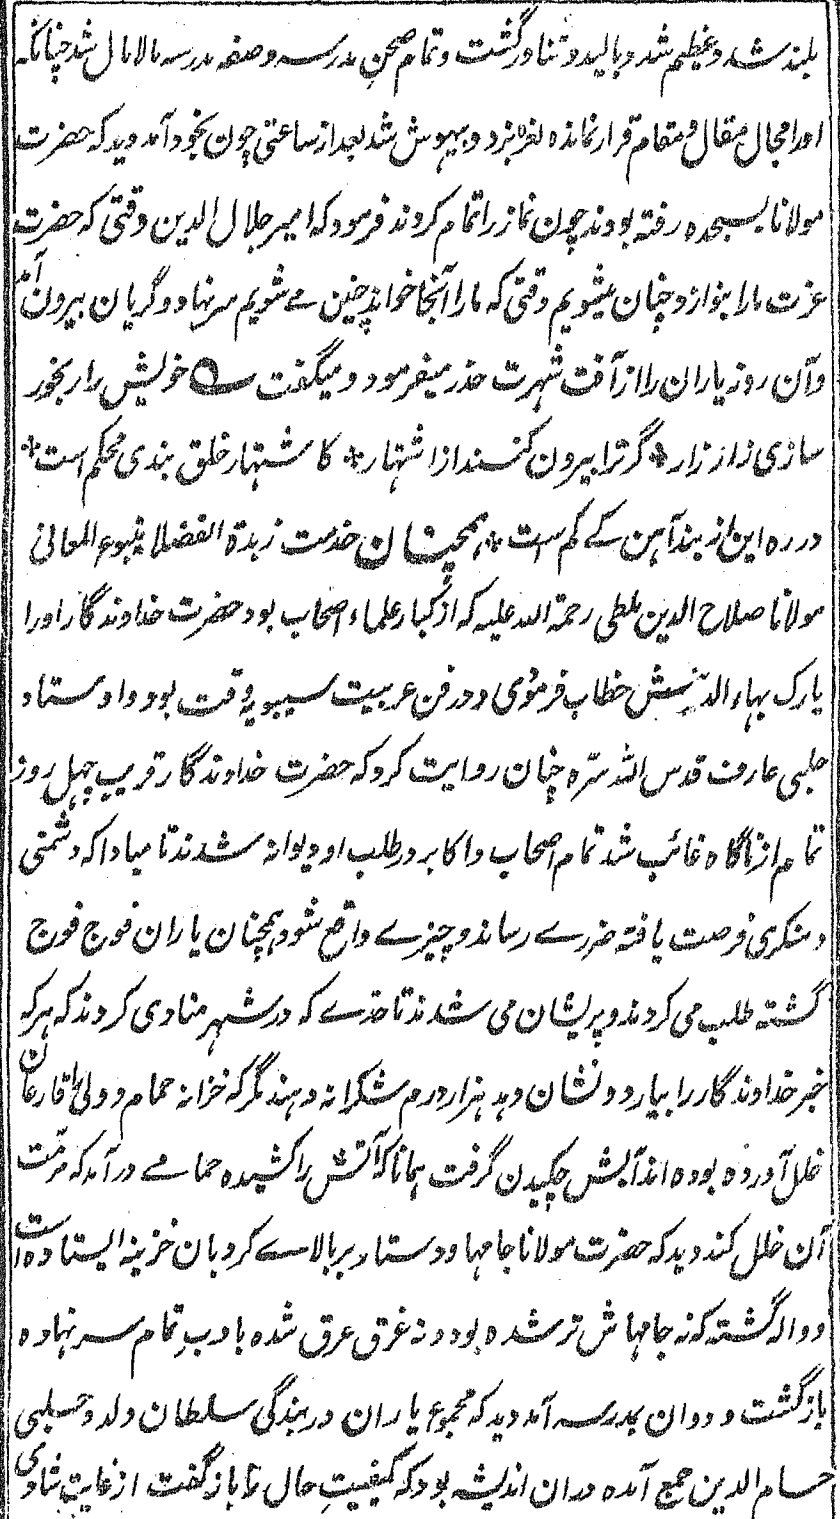 بلند شد و عظیم شد و بالید و تناور گشت و تمام صحن مدرسه و صفه مدرسه مالامال شد چنانکه
اورا مجال مقال و مقام قرار نمانده نعره بزد و بیهوش شد بعد از ساعتی چون بخود آمد دید که حضرت
مولانا بسجده رفته بودند چون نماز را تمام کردند فرمود که امیر جلال الدین وقتی که حضرت
عزت مارا بنوازد چنان میشویم وقتی که مارا آنجا خواند چنین مے شویم سر نهاد و گریان بیرون آمد
و آن روز یاران را از آفت شهرت حذر میفرمود و میگفت خویش را رنجور
سازی زار زار * گر ترا بیرون کنند از اشتهار * کاشتهار خلق بندی محکم است *
در ره این از بند آهن کے کم است * همچنان خدمت زبدة الفضلا ینبوع المعانی
مولانا صلاح الدین ملطی رحمة الله علیه که از کبار علماء اصحاب بود حضرت خداوندگار اورا
یارک بهاء الدینش خطاب فرمودی و در فن عربیت سیبویه وقت بود و اوستاد
چلبی عارف قدس الله سره چنان روایت کرد که حضرت خداوندگار قریب چهل روز
تمام از ناگاه غائب شد تمام اصحاب و اکابر در طلب او دیوانه شدند تا مبادا که دشمنی
و منکری فرصت یافته ضررے رساند و چیزے واقع شود همچنان یاران فوج فوج
گشته طلب می کردند و پریشان می شدند تا حدے که در شهر منادی کردند که هر که
خبر خداوندگار را بیارد و نشان دهد هزار درم شکرانه دهند مگر که خزانه حمام
خلل آورده بوده اند آبش چکیدن گرفت همانا که آتش را کشیده حمامے درآمد که مرمت
آن خلل کند دید که حضرت مولانا جامها و دستار بر بالاے کرد بان خزینه ایستاده است
و واله گشته که نه جامهاش تر شده بود و نه غرق عرق شده بادب تمام سر نهاده
بازگشت و دوان بمدرسه آمد دید که مجموع یاران در بندگی سلطان ولد و چلبی
حسام الدین جمع آمده دران اندیشه بودند که کیفیت حال را بازگفت از غایت شادی